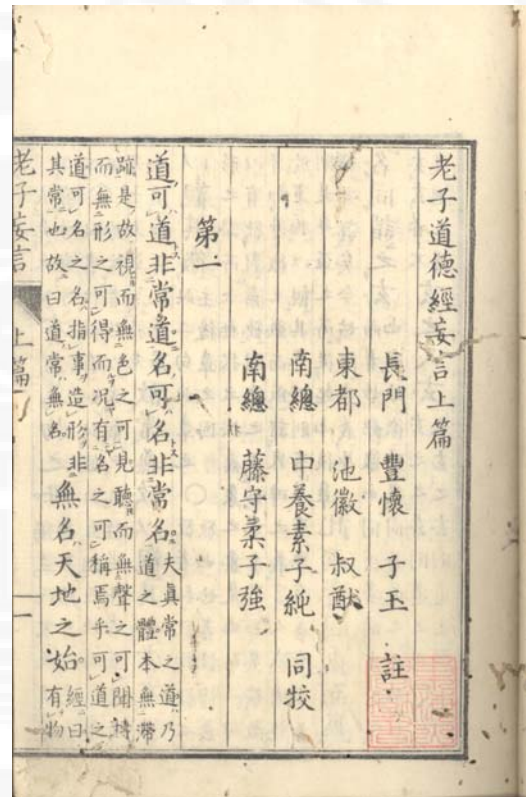 老子道德經妄言上篇
長門 豐懷 子玉 註
東都 池徽 叔猷
南總 中養素子純 同校
南總 藤守柔子強
第一
道可道非常道名可名非常名
夫眞常之道乃
道之體本無滯
跡是故視而無色之可見聽而無聲之可聞摶
而無形之可得而況有名之可稱焉乎可道之
道可名之名指事造形非
其常也故曰道常無名
無名天地之始
經曰
有物
老子妄言 上篇 一